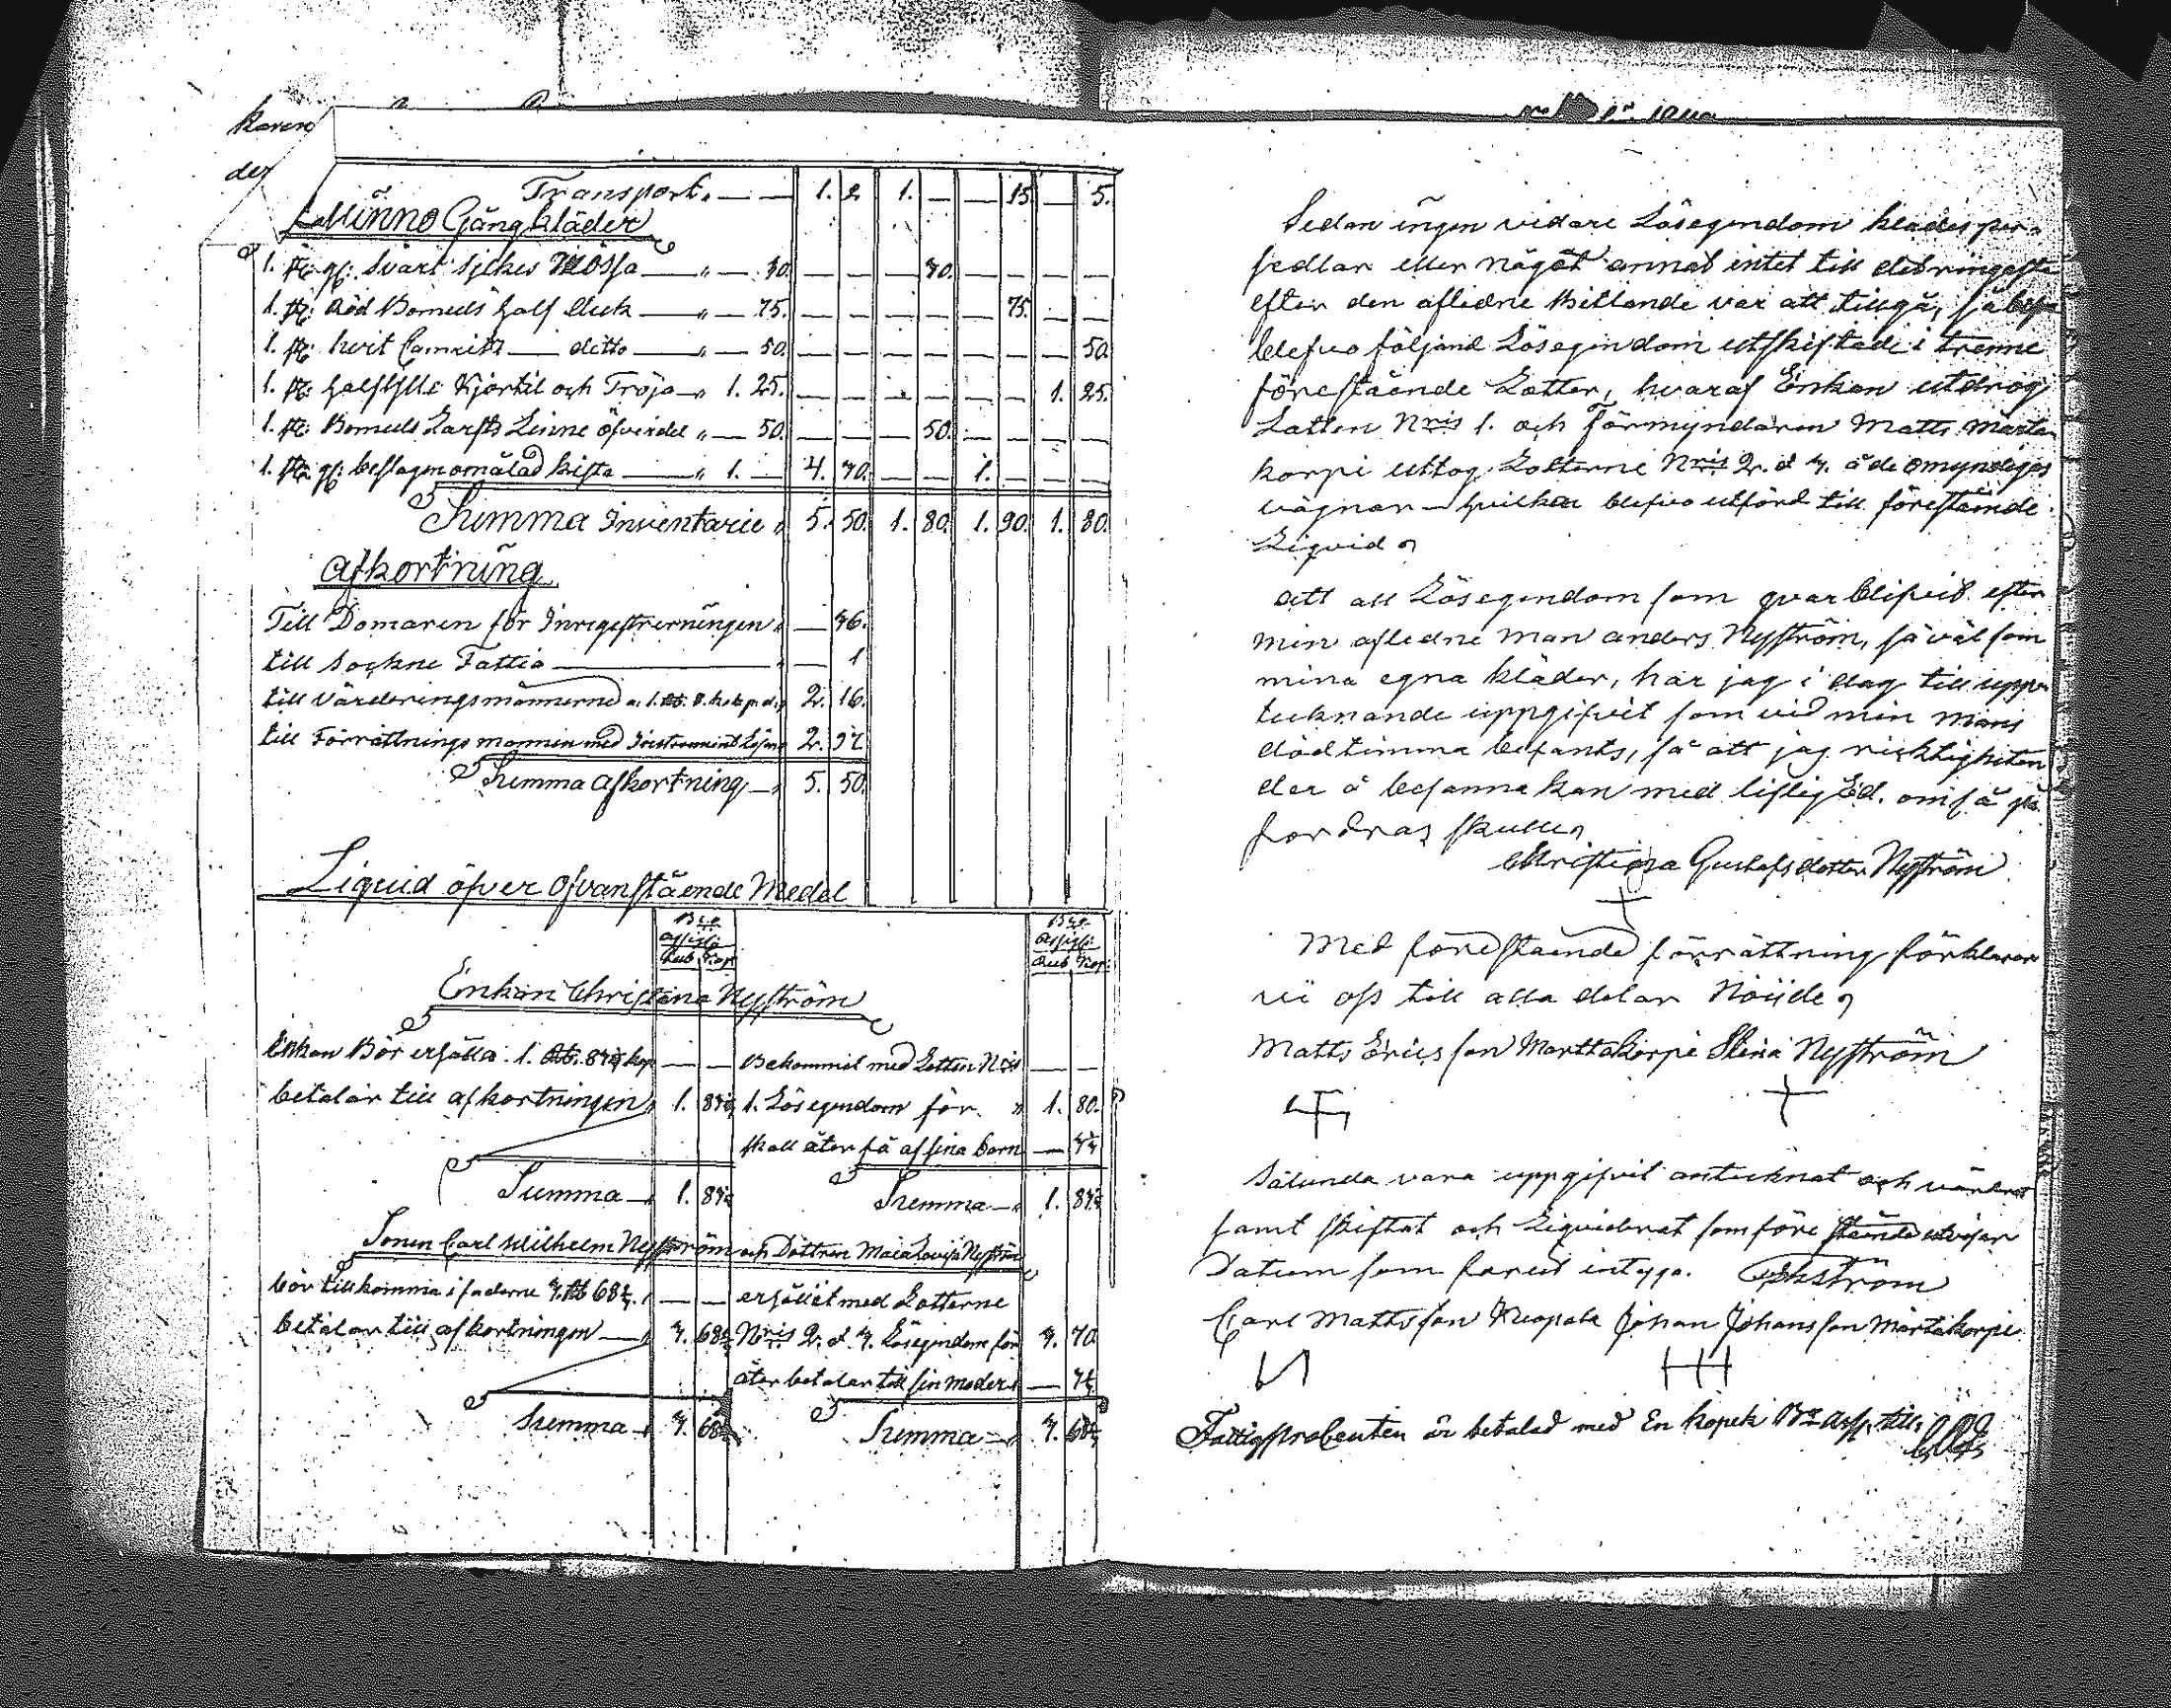 Transport. — — 1. 2 1. — — 15. — 5.
Qwinno Gångkläder
1. st: gl: Svart Sjlkes Mössa — „ — 30. — — — 30. — — — —
1. st: Röd Bomuls half Duk — „ — 75. — — — — — 75. — —
1. st: hvit — ditto — „ — 50. — — — — — — — 50.
1. st: halfylle Kjortil och Tröja „ 1. 25. — — — — — — 1. 25.
1. st: Bomuls Lärfts Linne öfverdel „ — 50. — — — 50. — — — —
1. st: gl: beslagen omålad kista — „ 1. — 4. 30. — — 1. — — —
Summa Inventarie „ 5. 50. 1. 80. 1. 90. 1. 80.
Afkortning
Till Domaren för Inregistrerningen „ — 36.
till Sockne Fattia — „ — 1
till Värderingsmännerne a. 1. Rb. 8. kop. „ 2. 16.
till Förrättnings mannen med „ 2. 97
Summa Afkortning — „ 5. 50.
Liquid öfver Ofvanstående Medel
Enkan Christina Nyström
Enkan Bör ersätta 1. Rb. kop — — Bekommit med Lotten Nris — —
betalar till afkortningen „ 1. 1. Lösegendom för „ 1. 80.
skall åter få af sina barn —
Summa — „ 1. Summa — „ 1.
Sonen Carl Wilhelm Nyström och Dottren Maia Lovisa Nyström
bör tillkomma i faderne 3. Rb 68 — — ersättit med Lotterne
betalar till afkortningen — „ 3. 68 Nris 2. & 3. Lösegindom för 3. 70
åter betalar till sin moder „ —
Summa — „ 3. 68 Summa — „ 3. 68
Sedan ingen vidare Lösegendom kläder per-
sedlar eller något annat intet till det ringaste
efter den afledne Billande var att tillgå, så
blefvo följand Lösegindom utskiftade i trenne
förestående Lotter, hvaraf Enkan utdrog
Lotten Nris 1. och Förmyndaren Matts Märta-
korpi uttog Lotterne Nris 2. & 3. å de omyndigas
vägnar — hvilka blefvo utförd till förestående
Liquid
att all Lösegendom som qvarblifvit efter
min afledne man anders Nyström, så väl som
mina egna kläder, har jag i dag till upp-
tecknande uppgifvit som vid min mans
dödtimma befants, så att jag ricktigheten
der å besanna kan med liflig Ed. om så på
fordras skulle
Christina Gustafsdotter Nyström
Med förestående förrättning förklarar
vi oss till alla delar Nöijde
Matts Ericsson Marttakorpi Stina Nyström
Sålunda vara uppgifvit antecknat och värderat
samt skiftat och Liquiderat som föreståndi utvisar
Datum som förut intyga. Ekström
Carl Mattsson Kuopala Johan Johansson Märtakorpi
Fattigprocenten är betalad med En kopek Bco Assi till: